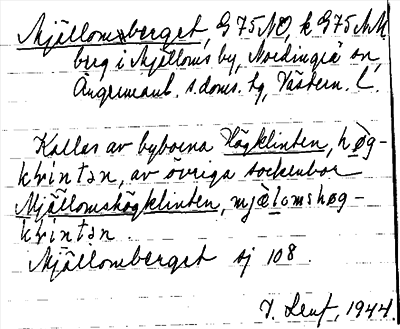 Mjällomsberget, G 75 NO, k G 75 NM
berg i Mjälloms by, Nordingrå sn,
Ångermanl. s. doms. hg, Västern. l.
Kallas av byborna Högklinten, hǿg-
klintən, av övriga sockenbor
Mjällomshögklinten, mjæ̀lomshøg-
klintən
Mjällomberget sj 108.
1944.